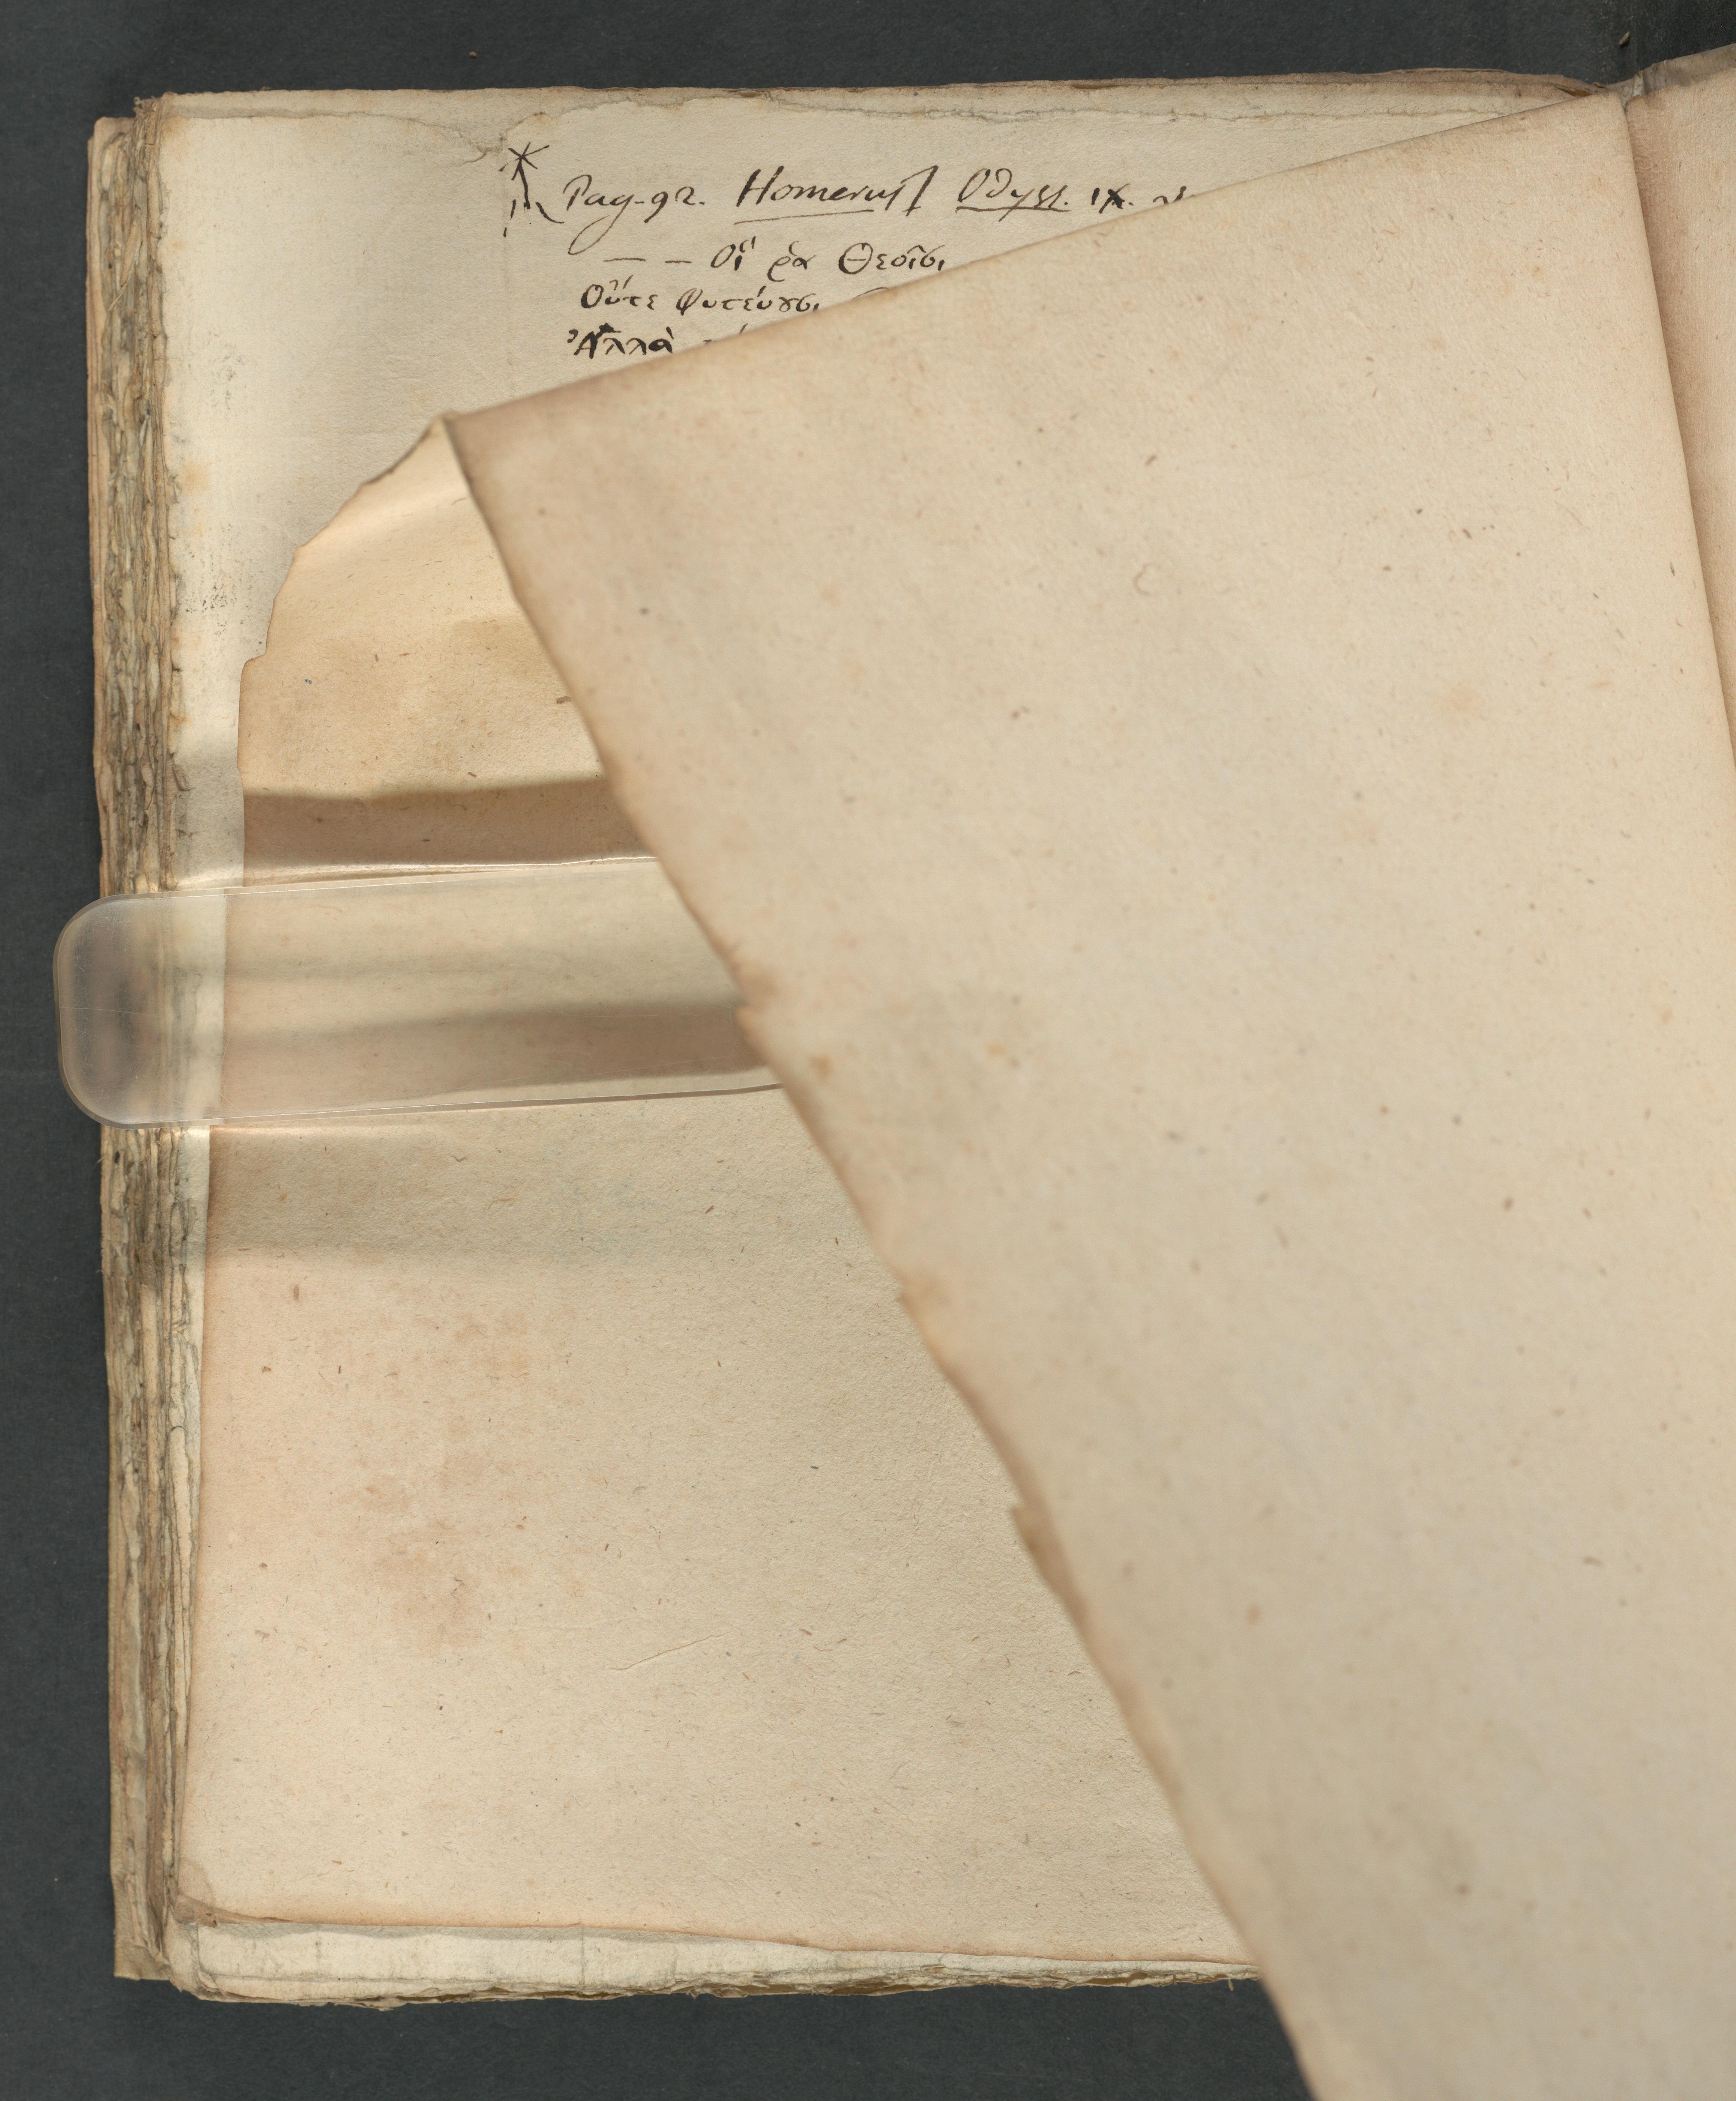 Pag. 92. Homerus Odyss. IX.
— — Οἵ ῥα Θεοῖσι
Οὔτε φυτεύουσι
Ἀλλὰ